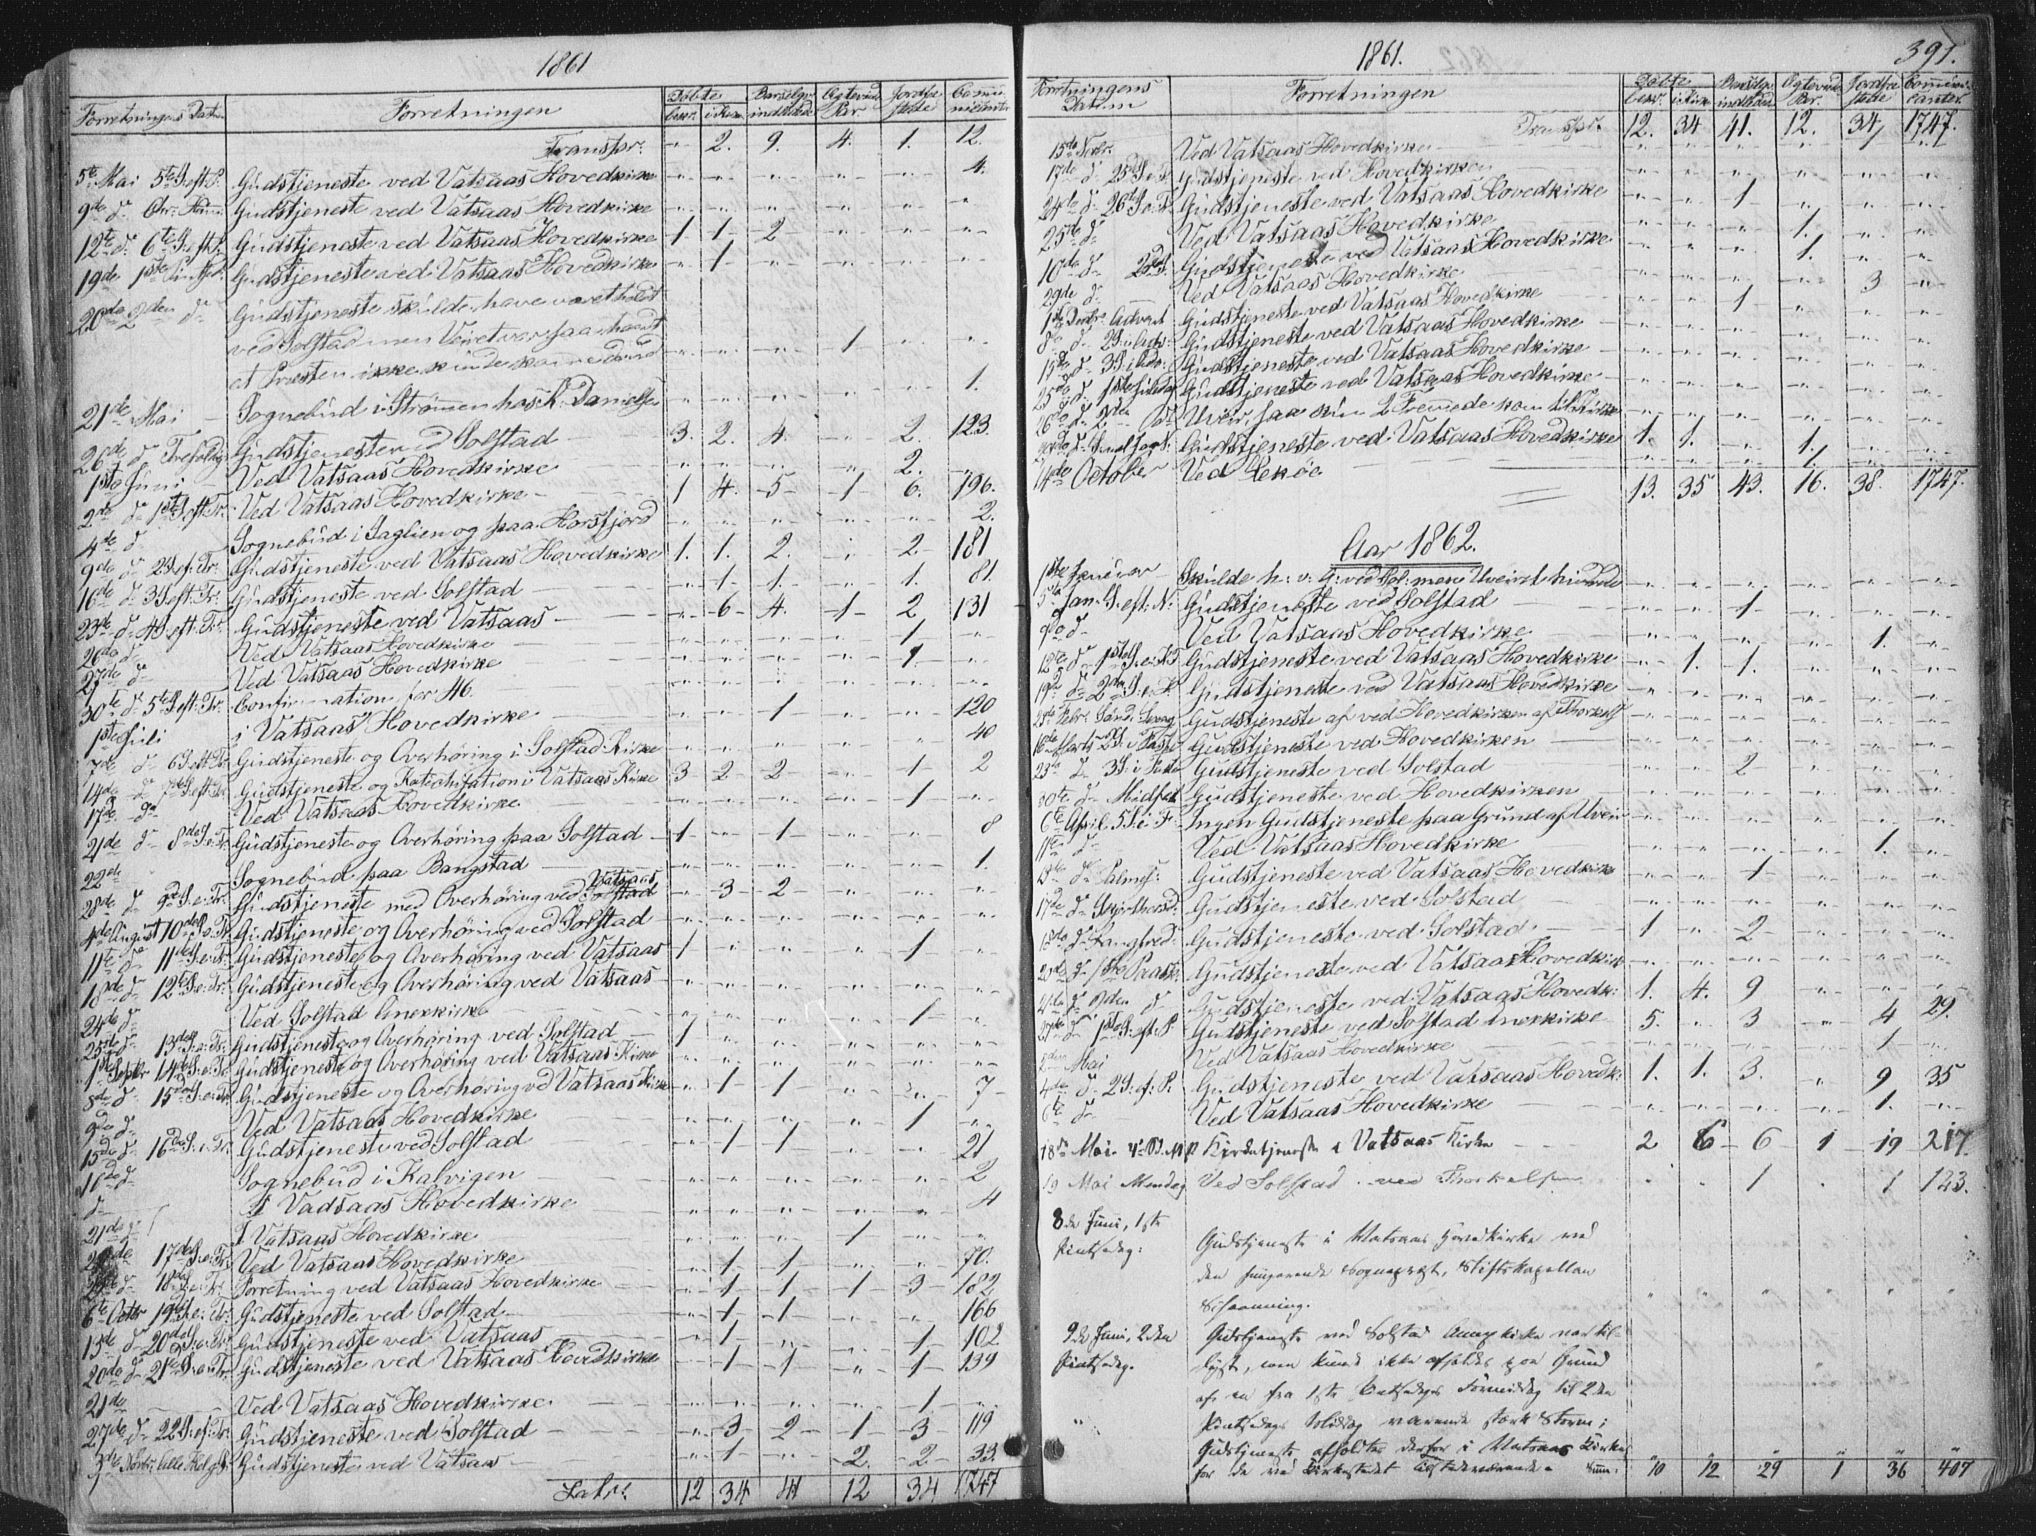 1861
Forretningens Datum Forretningen Døbte hiem. i Kirk. Barselqv. indledede Egteviede Par. Jordfæstede Communicanter
Transpr. " 2. 9. 4. 1. 12.
5te Mai 5te S. eft. P. Gudstjeneste ved Vatsaas Hovedkirke 4.
9de d° Chr. Him. Gudstjeneste ved Vatsaas Hovedkirke
12te d° 6te S. eft. P. Gudstjeneste ved Vatsaas Hovedkirke 1 1 2
19de 1ste Gudstjeneste ved Vatsaas Hovedkirke " 1
20de 2den d° Gudstjeneste skulde have været holdt
ved Solstad men Veiret var saa haardt
at Præsten ikke kunde komme derud " " " 1 " "
21de Mai Sognebud i Strømmen hos K. Danielse 1.
26de d° Trefoldig. Gudstjeneste ved Solstad 3. 2. 4. " 2. 123.
1ste Juni Ved Vatsaas Hovedkirke " " " " 2. "
2de d° 1ste S. eft. Tr. Ved Vatsaas Hovedkirke 1 4. 5 1 6. 196.
4de d° Sognebud i Saglien og paa Horsfjord 2.
9de d° 2 S. ef. Tr. Gudstjeneste ved Vatsaas Hovedkirke 1. 1. 2. " 2 181
16de d° 3 S. eft. Tr. Gudstjeneste ved Solstad " 1 1 " 1. 81.
23de d° 4 S. eft. Tr. Gudstjeneste ved Vatsaas " 6 4. 1 2 131
26de d° Ved Vatsaas Hovedkirke " " " " 1 "
27de d° Ved Vatsaas Hovedkirke " " " " 1. "
30te d° 5te S. eft. Tr. Confirmation for 46.
1ste Juli i Vatsaas Hovedkirke " " 1 " " 120
7de d° 6 S. eft. Tr. Gudstjeneste og Overhøring i Solstad Kirke 40
14de d° 7de S. eft. Tr. Gudstjeneste og Katechisation i Vatsaas Kirke 3 2 2 " 1 2
17de d° Ved Vatsaas Hovedkirke " " " " 1 "
21de d° 8de S. e. Tr. Gudstjeneste og Overhøring paa Solstad 1 " 1 " " 8
22de Sognebud paa Bangstad 1.
28de d° 9de S. e. Tr. Gudstjeneste med Overhøring ved Solstad Vatsaas " 3 2 " " "
4de August 10de S. e. Tr. Gudstjeneste og Overhøring ved Solstad
11te d° 11te S. e. Tr. Gudstjeneste og Overhøring ved Vatsaas 1 " " " 1 "
18de d° 12te S. e. Tr. Gudstjeneste og Overhøring ved Vatsaas
24de d° Ved Solstad Anexkirke " " " " 1 "
25de d° 13de S. e. Tr. Gudstjeneste og Overhøring ved Solstad 1
1ste Septbr 14de S. e. Tr. Gudstjeneste og Overhøring ved Vatsaas Kirke
8de d° 15de S. e. Tr. Gudstjeneste og Overhøring ved Vatsaas Kirke " 1 1 " 2 7
9de d° Ved Vatsaas Hovedkirke " " " " 1 "
15de d° 16de S. e. Tr. Gudstjeneste ved Solstad " 1 1 " " 21
16de d° Sognebud i Kalvigen 2
d° I Vadsaas Hovedkirke 4
21de I Vatsaas Hovedkirke " " " 1 " "
17de S. e. Tr. Ved Vatsaas Hovedkirke " 1 1 " " 70.
18de S. e. Tr. Forretning ved Vatsaas Hovedkirke " 1 1 1 3 182
6te Octbr 19de S. e. Tr. Gudstjeneste ved Solstad " 1 1 " " 166
13de d° 20de S. e. Tr. Gudstjeneste ved Vatsaas " 1 " " 1 102.
20de d° 21de S. e. Tr. Gudstjeneste ved Vatsaas Hovedkirke " 1 1 " 1 139
21de Ved Vatsaas Hovedkirke " " " " 1 "
27de d° 22 S. ef. Tr. Gudstjeneste ved Solstad " 3 2 1 3 119
3de Novbr. Alle Helg. S. Gudstjeneste ved Vatsaas " 1 " 2. 2 33.
Latr. 12 34 41 12 34 1747
1861. 391.
Forretningens Datum Forretningen Døbte hiem. i Kirk. Barselqv. indledede Egteviede Par. Jordfæstede Communicanter.
Transpr. 12. 34 41. 12. 34 1747.
15de Novbr. Ved Vatsaas Hovedkirke
17de d° 25de S. e. T. Gudstjeneste ved Hovedkirke
24de d° 26de S. e. T. Gudstjeneste ved Vatsaas Hovedkirke " " 1 " " "
25de d° Ved Vatsaas Hovedkirke " " " 1. " "
10de d° Gudstjeneste ved Vatsaas Hovedkirke " " " 1. " "
29de d° Ved Vatsaas Hovedkirke " " " " 3 "
1ste Decbr. Advent Gudstjeneste ved Vatsaas Hovedkirke " " 1 " " "
8de d° 2 S. i Adv. Gudstjeneste ved Vatsaas Hovedkirke
15de d° 3 S. i Adv. Gudstjeneste ved Vatsaas Hovedkirke
25de d° 1ste Juledag Gudstjeneste ved Vatsaas Hovedkirke
26de d° 2den d° Uveir saa kun 2 Fremede kom til Kirke
Gudstjeneste ved Vatsaas Hovedkirke 1. 1. " 1. " "
14de October Ved Lekøe " " " 1 " "
13. 35 43. 16. 38. 1747.
Aar 1862.
1ste Januar Skulde h: v: G: ved Sol: mere Uveiret hindrede
5te Jan. S. eft. N: Gudstjeneste ved Solstad " " 1 " " "
9de d° Ved Vatsaas Hovedkirke " " " " 1. "
12te d° 1ste S. e. H3K Gudstjeneste ved Vatsaas Hovedkirke " 1. 1. " " "
19de d° 2den S. Gudstjeneste ved Vatsaas Hovedkirke
Febr. Gudstjeneste af ved Hovedkirken af Thorkels
16de Marts 2 S. i Faste Gudstjeneste ved Hovedkirken
23de d° 3 S. i Faste Gudstjeneste ved Solstad " " 2 " " "
30te d° Midfast Gudstjeneste ved Hovedkirken
6te April. 5 S. i F. Ingen Gudstjeneste paa Grund af Uveir
11te d° Ved Vatsaas Hovedkirke " " " " 1. "
13de d° Palmes: Gudstjeneste ved Vatsaas Hovedkirke " " 1 " " "
17de d° Skjertorsd. Gudstjeneste ved Solstad
18de d° Langfred. Gudstjeneste ved Solstad 1 " 2 " " "
20de d° 1ste Paask. Gudstjeneste ved Vatsaas Hovedkirk
21de d° 2den d° Gudstjeneste ved Vatsaas Hovedk: 1. 4. 9 " " "
27de d° 1ste S. eft. P. Gudstjeneste ved Solstad Anexkirke 5. " 3 " 4 29.
2den Mai Ved Vatsaas Hovedkirke " " " " 1 "
4de d° 2 S. ef. P. Gudstjeneste ved Vatsaas Hovedk: 1. 1. 3. " 9 35
6te d° Ved Vatsaas Hovedkirke " " " " 1. "
18de Mai 4de S. Kirketjeneste i Vatsaas Kirke 2 6 6 1 19 217.
19 Mai Mandag Ved Solstad ved Thorkelsen " " 1 " 1 123.
8de Juni, 1ste
Pintsedag: Gudstjeneste i Vatsaas Hovedkirke ved
den fungerende Sognepræst, Stiftskapellan
Schaanning. " " " " " "
9de Juni, 2den Gudstjeneste ved Solstad Annexkirke var til-
Pintsedag. lyst, men kunde ikke afholdes paa Grund
af en fra 1ste Pintsedags Formiddag til 2den
Pintsedags Middag værende stærk Storm;
Gudstjeneste afholdtes derfor i Vatsaas Kirke
for de ved Kirkestedet tilstedeværende. Sum: 10 12 29 1 36 407